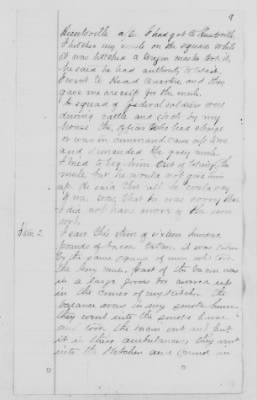 9
Huntsville Ala I had got to Huntsville
I hitched my mule on the square while
it was hitched a wagon master took it
he said he had authority to take
I went to Head Quarters and they
gave me a receipt for the mule.
A squad of federal soldiers were
driving cattle and stock by my
house the officer who had charge
or was in command came up
and demanded the grey mule.
I tried to beg him out of taking the
mule but he would not give him
up. He said that all he could say
to me was that he was sorry that
I did not have more of the same
sort.
Item 2
I saw this item of sixteen hundred
pounds of bacon taken. it was taken
by the same squad of men who took
the grey mule, part of the bacon was
in a large box
in the corner of my kitchen. The
balance was in my smoke house
they went into the smoke house
and took the bacon out and put
it in their ambulances, they went
into the kitchen and carried on